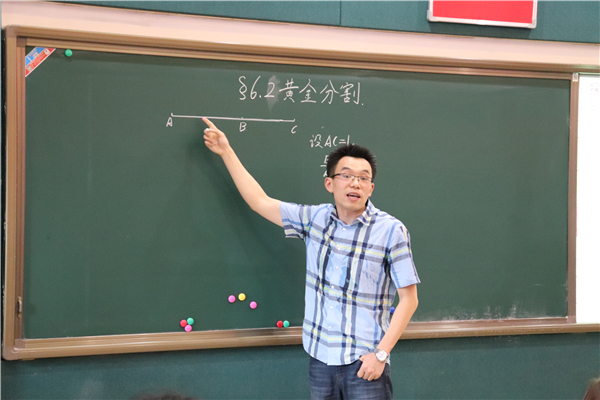 §6.2黄金分割.
A B C
设AC=1